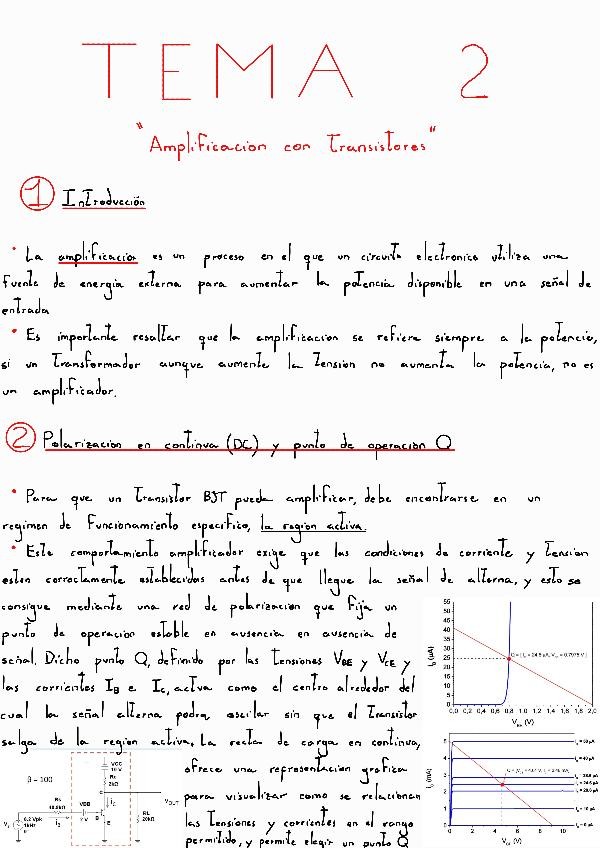 TEMA 2
"Amplificacion con Transistores"
1 Introducción
• La amplificacion es un proceso en el que un circuito electronico utiliza una
fuente de energía externa para aumentar la potencia disponible en una señal de
entrada
• Es importante resaltar que la amplificacion se refiere siempre a la potencia,
si un Transformador aunque aumente la Tensión no aumenta la potencia, no es
un amplificador.
2 Polarizacion en continua (DC) y punto de operacion Q
• Para que un Transistor BJT pueda amplificar, debe encontrarse en un
regimen de Funcionamiento especifico, la region activa.
• Este comportamiento amplificador exige que las condiciones de corriente y Tension
esten correctamente establecidas antes de que llegue la señal de alterna, y esto se
consigue mediante una red de polarización que fija un
punto de operacion estable en ausencia en ausencia de
señal. Dicho punto Q, definido por las Tensiones VBE y VCE y
las corrientes IB e IC, actua como el centro alrededor del
cual la señal alterna podra oscilar sin que el Transistor
salga de la region activa. La recta de carga en continua,
ofrece una representacion grafica
para visualizar como se relacionan
las Tensiones y corrientes en el rango
permitido, y permite elegir un punto Q
55
50
45
40
35
30
25
20
15
10
5
0
0,0 0,2 0,4 0,6 0,8 1,0 1,2 1,4 1,6 1,8 2,0
VBE (V)
5
4
3
2
1
0
0 2 4 6 8 10
VCE (V)
β = 100
VCC
Rc
2kΩ
VBB
RL
20kΩ
VOUT
0.2 Vpk
1kHz
0°